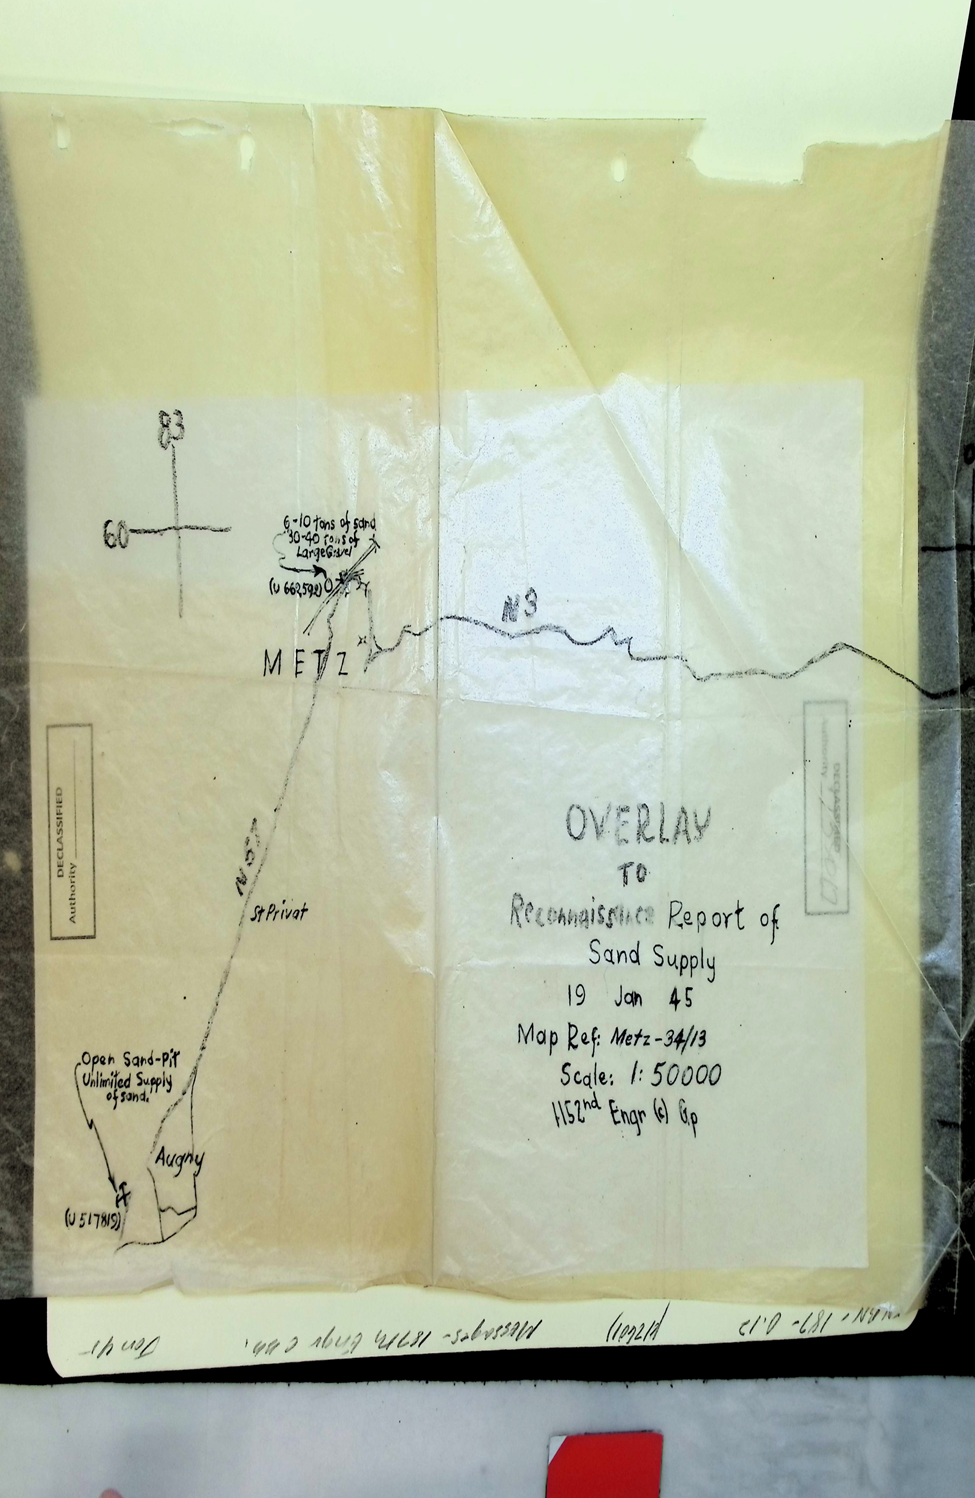 83
60
6-10 tons of sand
30-40 tons of
Large Gravel
(U 662592)
N3
METZ
N57
St Privat
OVERLAY
TO
Reconnaissance Report of
Sand Supply
19 Jan 45
Map Ref: Metz-34/13
Scale: 1:50000
1152nd Engr (c) Gp
Open Sand-Pit
Unlimited Supply
of sand.
Augny
(U 517815)
DECLASSIFIED
Authority
DECLASSIFIED
Authority
187- 0.12
Messages- 187th Engr C Bn.
Jan 45